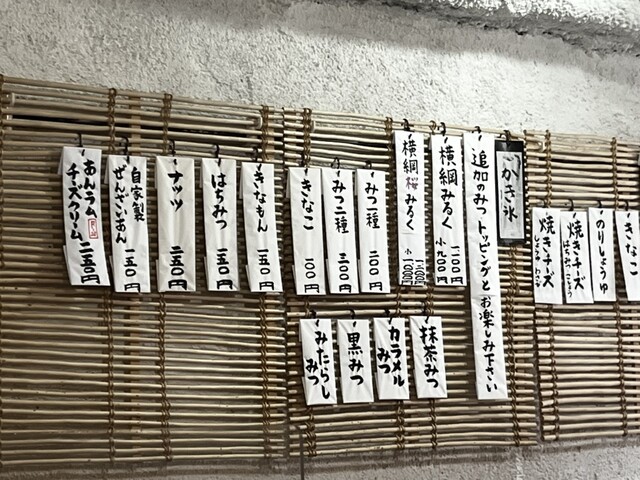 かき氷
追加のみつ トッピングと お楽しみ下さい
横綱みるく
一二〇〇円
小 九〇〇円
横綱桜みるく
小 一〇〇〇円
みつ一種
二〇〇円
みつ二種
三〇〇円
きなこ
一〇〇円
きなもん
一五〇円
はちみつ
二五〇円
ナッツ
二五〇円
自家製
ぜんざいあん
一五〇円
あんラム
チーズクリーム
二五〇円
抹茶みつ
カラメル
みつ
黒みつ
みたらし
みつ
きなこ
のりしょうゆ
焼きチーズ
はちみつこしょう
焼きチーズ